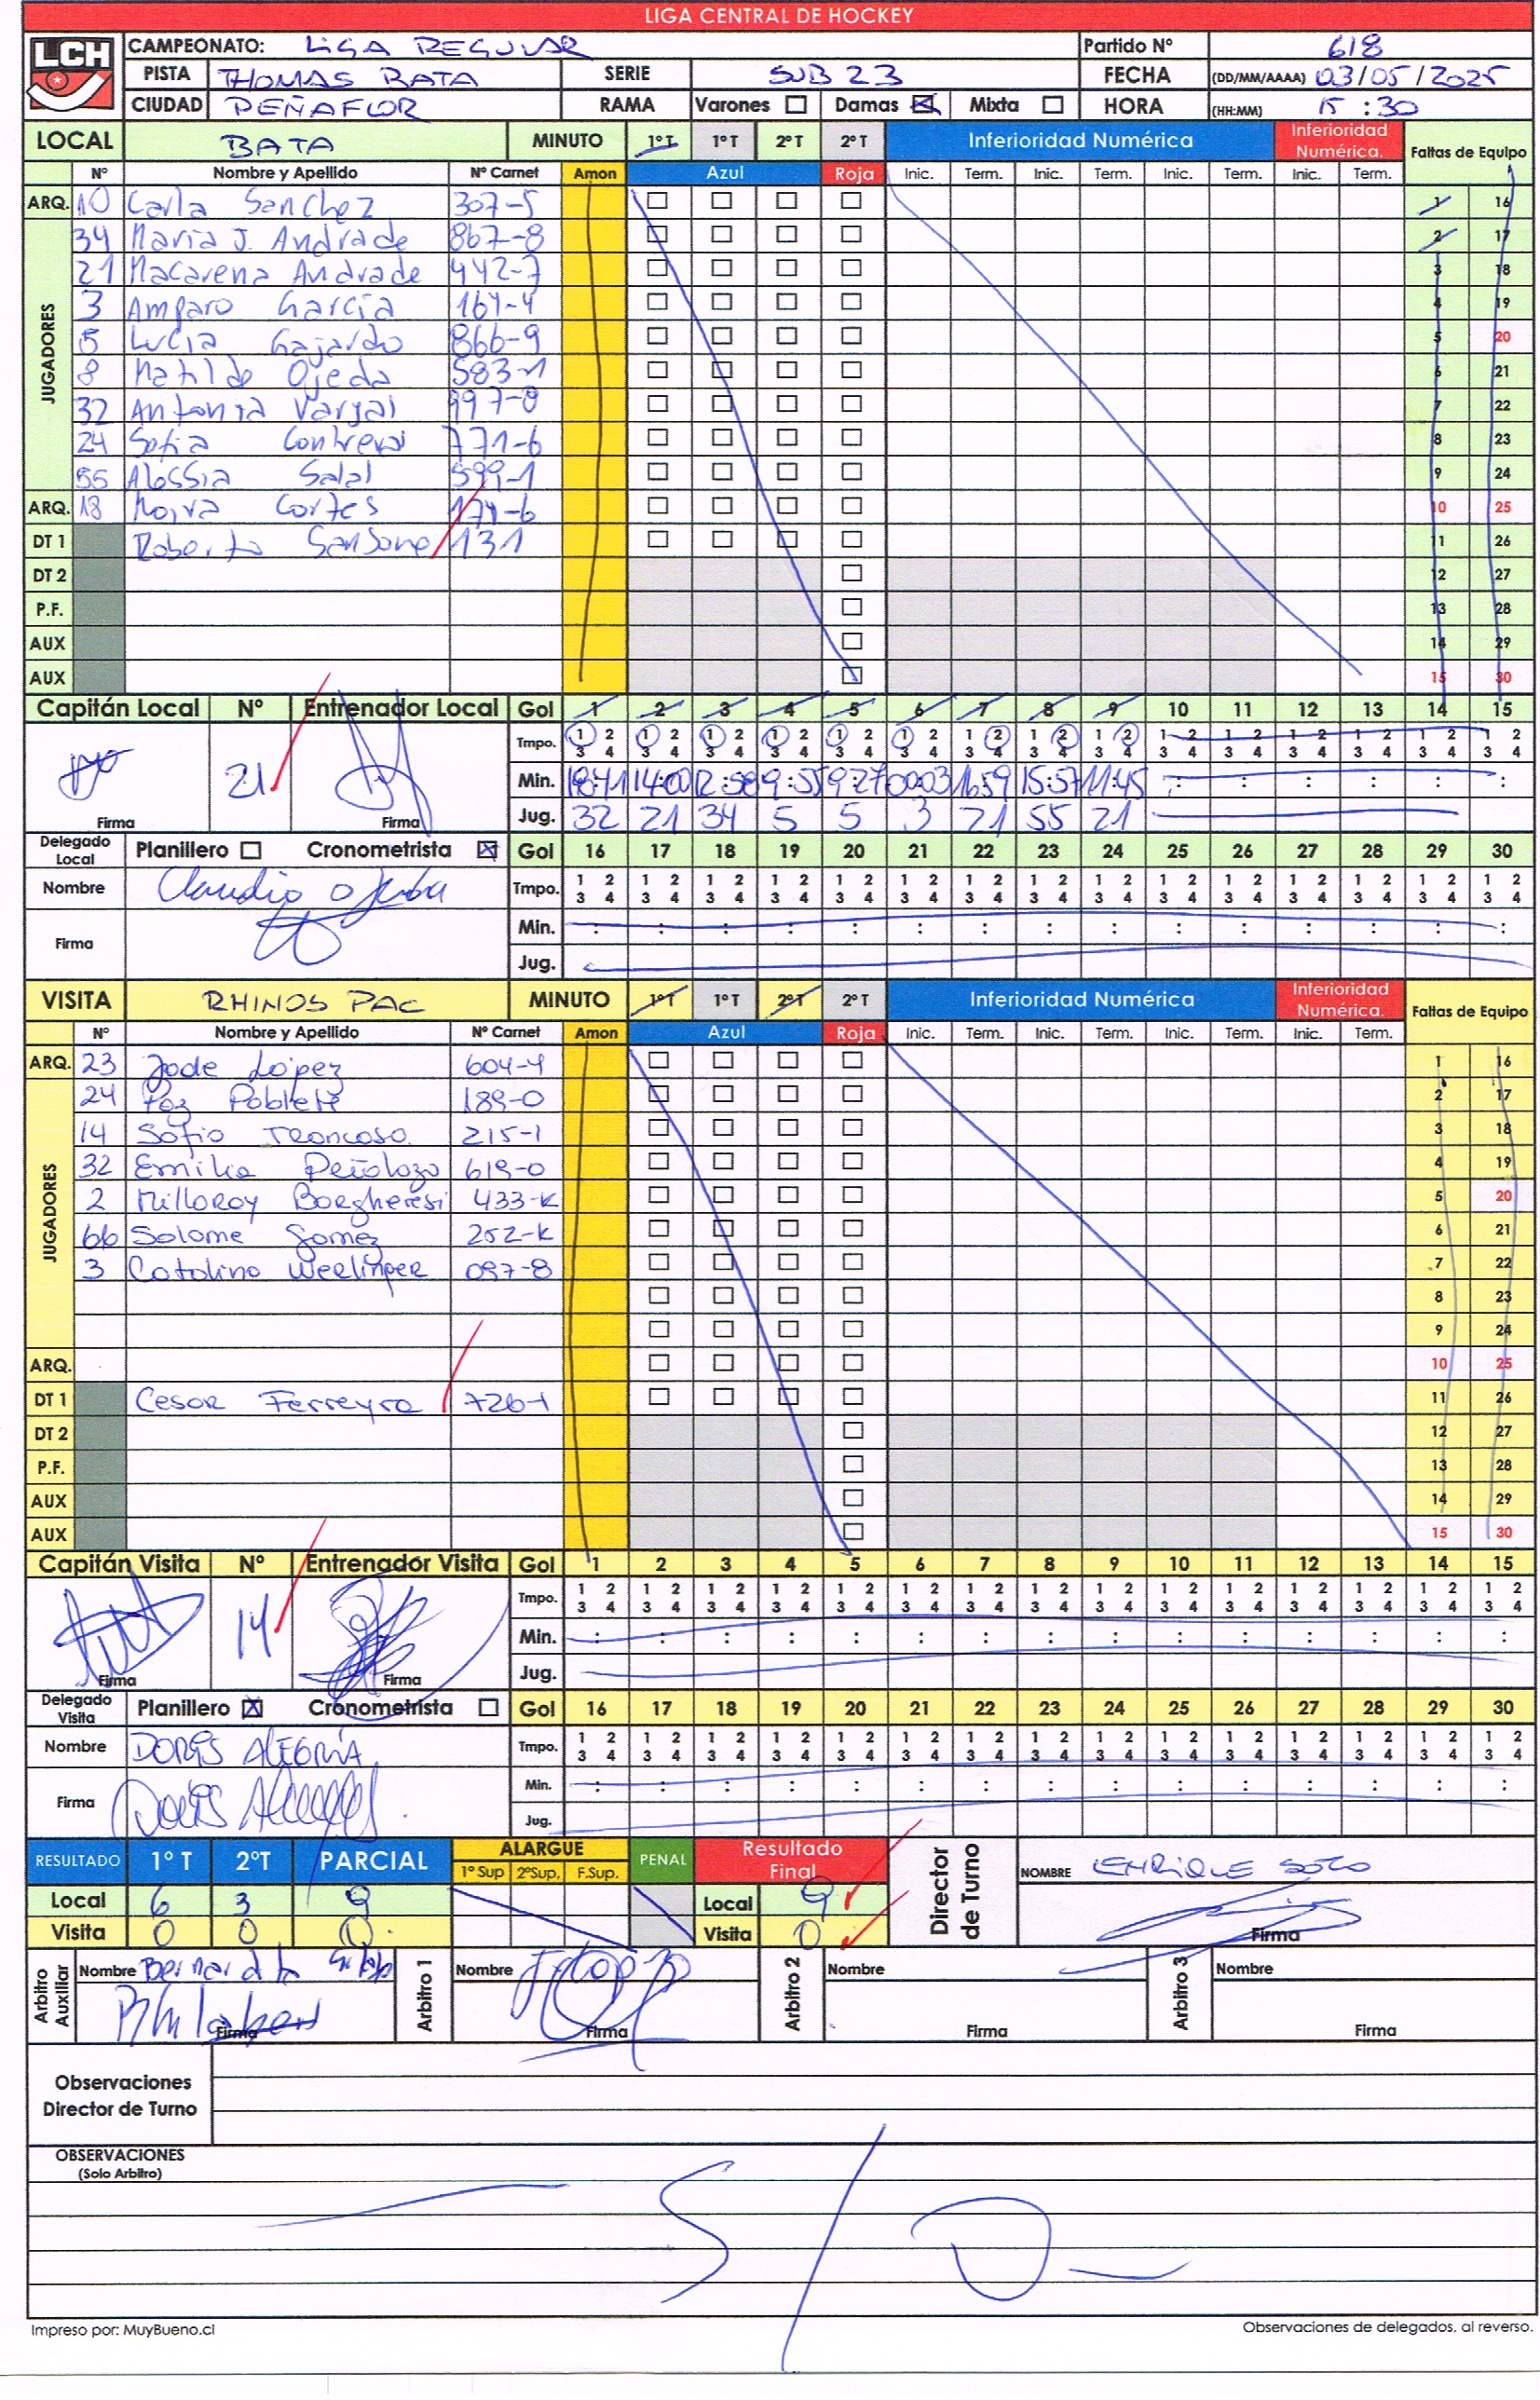 LIGA CENTRAL DE HOCKEY
LCH CAMPEONATO: LIGA REGULAR Partido Nº 618
PISTA THOMAS BATA SERIE SUB 23 FECHA (DD/MM/AAAA) 03/05/2025
CIUDAD PEÑAFLOR RAMA Varones Damas Mixta HORA (HH:MM) 15:30
LOCAL BATA MINUTO 1º T 1º T 2º T 2º T Inferioridad Numérica Inferioridad Numérica. Faltas de Equipo
Nº Nombre y Apellido Nº Carnet Amon Azul Roja Inic. Term. Inic. Term. Inic. Term. Inic. Term.
ARQ. 10 Carla Sanchez 307-5 1 16
JUGADORES
34 Maria J. Andrade 867-8 2 17
21 Macarena Andrade 442-7 3 18
3 Amparo Garcia 164-4 4 19
5 Lucia Gajardo 866-9 5 20
8 Matilde Ojeda 583-1 6 21
32 Antonia Vargas 997-8 7 22
24 Sofia Contreras 771-6 8 23
55 Alessia Salas 599-1 9 24
ARQ. 18 Moira Cortes 174-6 10 25
DT 1 Roberto Sansone 131 11 26
DT 2 12 27
P.F. 13 28
AUX 14 29
AUX 15 30
Capitán Local Nº Entrenador Local Gol 1 2 3 4 5 6 7 8 9 10 11 12 13 14 15
Tmpo. 1 2 3 4 1 2 3 4 1 2 3 4 1 2 3 4 1 2 3 4 1 2 3 4 1 2 3 4 1 2 3 4 1 2 3 4 1 2 3 4 1 2 3 4 1 2 3 4 1 2 3 4 1 2 3 4 1 2 3 4
21 Min. 18:41 14:00 12:58 9:55 9:27 00:03 16:59 15:57 11:45 : : : : : :
Firma Firma Jug. 32 21 34 5 5 3 21 55 21
Delegado Local Planillero Cronometrista Gol 16 17 18 19 20 21 22 23 24 25 26 27 28 29 30
Nombre Claudio Ojeda Tmpo. 1 2 3 4 1 2 3 4 1 2 3 4 1 2 3 4 1 2 3 4 1 2 3 4 1 2 3 4 1 2 3 4 1 2 3 4 1 2 3 4 1 2 3 4 1 2 3 4 1 2 3 4 1 2 3 4 1 2 3 4
Firma Min. : : : : : : : : : : : : : : :
Jug.
VISITA RHINOS PAC MINUTO 1º T 1º T 2º T 2º T Inferioridad Numérica Inferioridad Numérica. Faltas de Equipo
Nº Nombre y Apellido Nº Carnet Amon Azul Roja Inic. Term. Inic. Term. Inic. Term. Inic. Term.
ARQ. 23 Jade López 604-4 1 16
JUGADORES
24 Paz Poblete 189-0 2 17
14 Sofia Troncoso 215-1 3 18
32 Emilia Peñaloza 619-0 4 19
2 Millaray Borgheresi 433-K 5 20
66 Salome Gomez 252-K 6 21
3 Catalina Werlinger 097-8 7 22
8 23
9 24
ARQ. 10 25
DT 1 Cesar Ferreyra 726-1 11 26
DT 2 12 27
P.F. 13 28
AUX 14 29
AUX 15 30
Capitán Visita Nº Entrenador Visita Gol 1 2 3 4 5 6 7 8 9 10 11 12 13 14 15
Tmpo. 1 2 3 4 1 2 3 4 1 2 3 4 1 2 3 4 1 2 3 4 1 2 3 4 1 2 3 4 1 2 3 4 1 2 3 4 1 2 3 4 1 2 3 4 1 2 3 4 1 2 3 4 1 2 3 4 1 2 3 4
14 Min. : : : : : : : : : : : : : : :
Firma Firma Jug.
Delegado Visita Planillero Cronometrista Gol 16 17 18 19 20 21 22 23 24 25 26 27 28 29 30
Nombre DORIS ALEGRÍA Tmpo. 1 2 3 4 1 2 3 4 1 2 3 4 1 2 3 4 1 2 3 4 1 2 3 4 1 2 3 4 1 2 3 4 1 2 3 4 1 2 3 4 1 2 3 4 1 2 3 4 1 2 3 4 1 2 3 4 1 2 3 4
Firma Min. : : : : : : : : : : : : : : :
Jug.
RESULTADO 1º T 2ºT PARCIAL ALARGUE 1º Sup 2ºSup. F.Sup. PENAL Resultado Final Director de Turno NOMBRE ENRIQUE SOTO
Local 6 3 9 Local 9
Visita 0 0 0 Visita 0 Firma
Arbitro Auxiliar Nombre Firma Arbitro 1 Nombre Firma Arbitro 2 Nombre Firma Arbitro 3 Nombre Firma
Observaciones Director de Turno
OBSERVACIONES
(Solo Arbitro)
S/O
Impreso por: MuyBueno.cl Observaciones de delegados, al reverso.